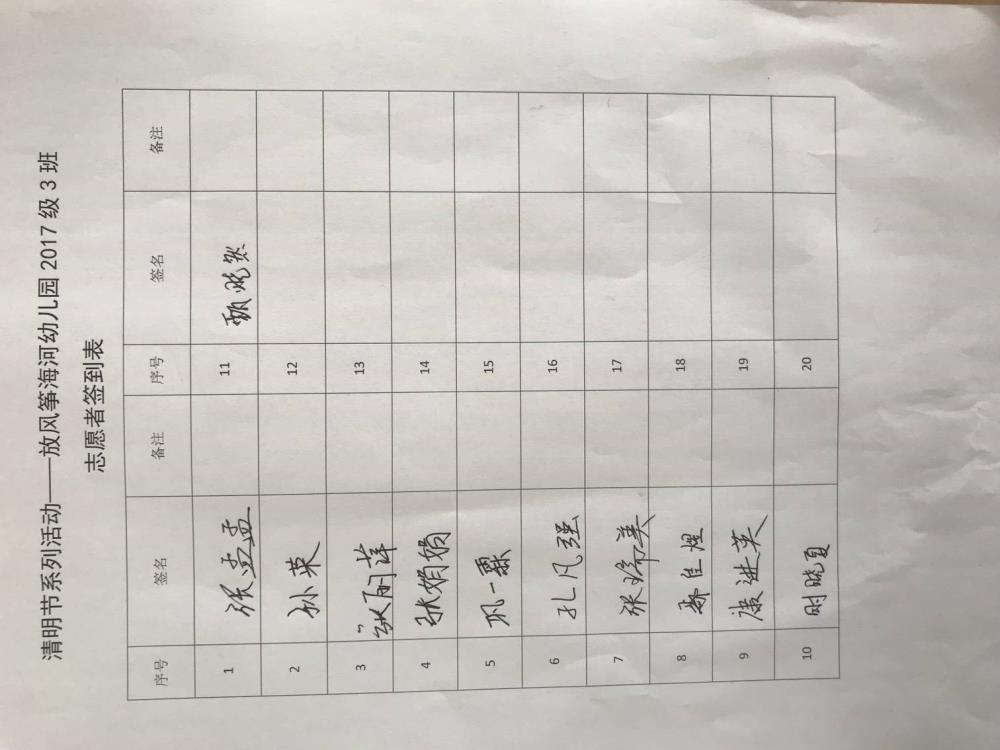 清明节系列活动——放风筝海河幼儿园 2017 级 3 班
志愿者签到表
序号 签名 备注 序号 签名 备注
1 张孟孟 11
2 孙莱 12
3 13
4 张娟娟 14
5 孔一霖 15
6 孔凡强 16
7 张瑞英 17
8 18
9 康进英 19
10 时晓夏 20